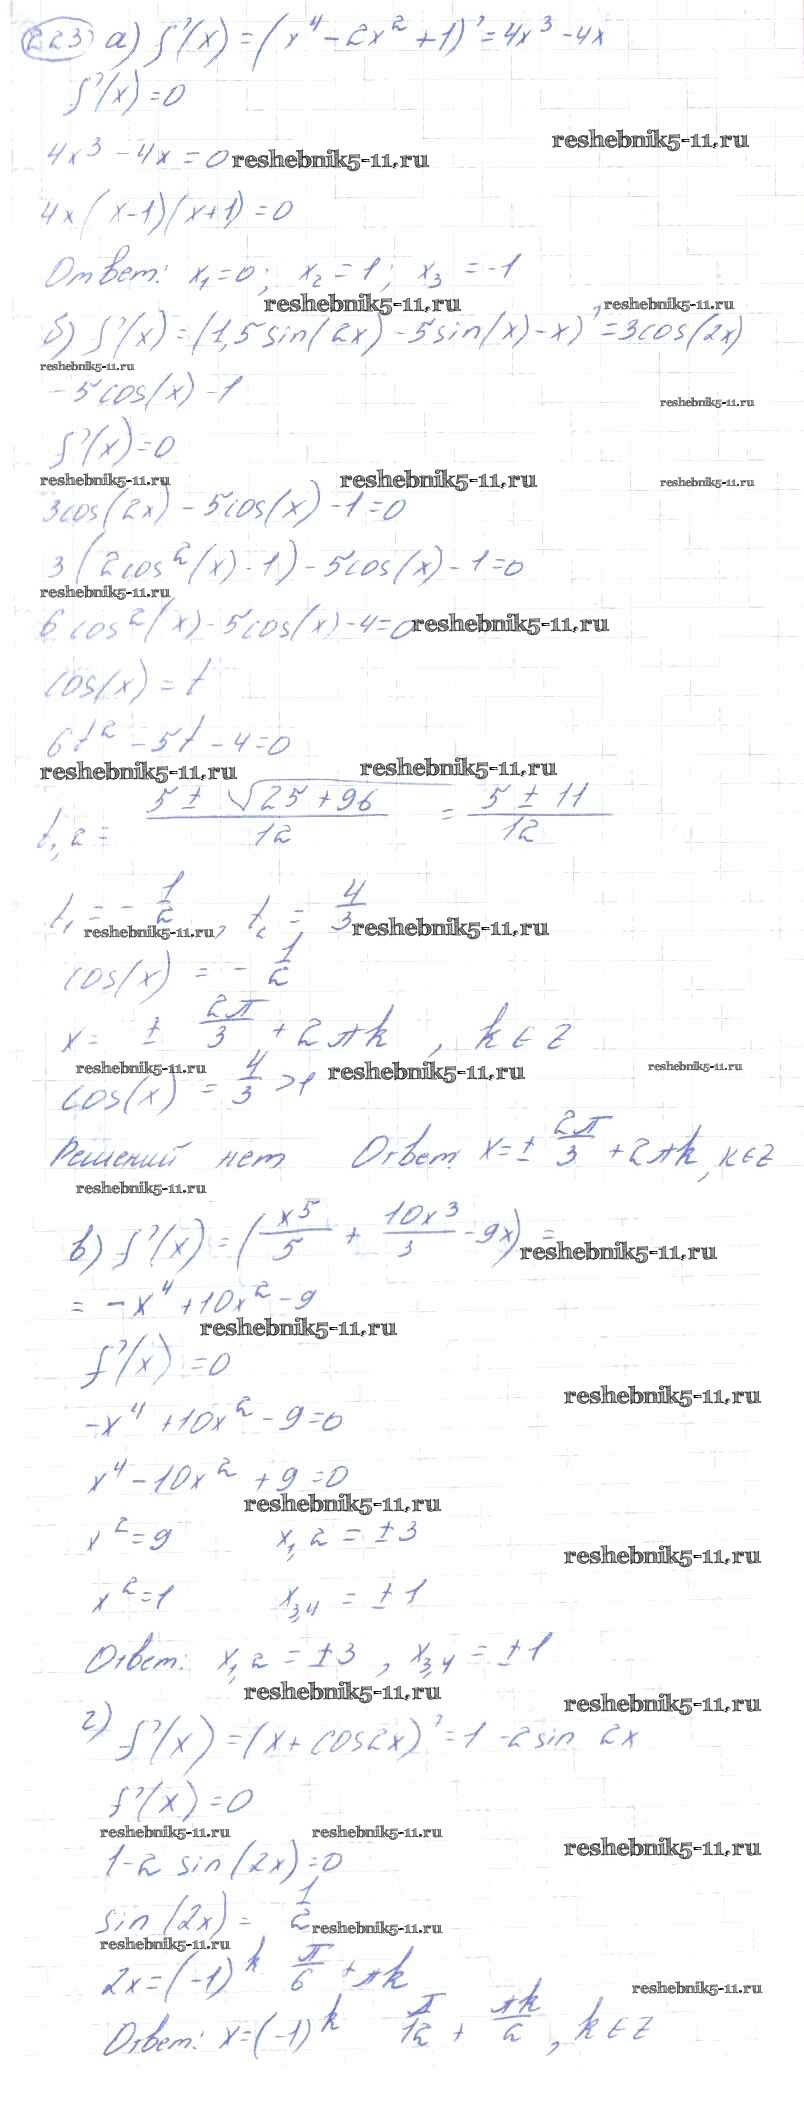 223 а) f'(x) = (x⁴ - 2x² + 1)' = 4x³ - 4x
f'(x) = 0
reshebnik5-11.ru
4x³ - 4x = 0 reshebnik5-11.ru
4x(x-1)(x+1) = 0
Ответ: x₁ = 0; x₂ = 1; x₃ = -1
reshebnik5-11.ru reshebnik5-11.ru
б) f'(x) = (1,5 sin(2x) - 5 sin(x) - x)' = 3cos(2x)
reshebnik5-11.ru
- 5cos(x) - 1
reshebnik5-11.ru
f'(x) = 0
reshebnik5-11.ru reshebnik5-11.ru reshebnik5-11.ru
3cos(2x) - 5cos(x) - 1 = 0
3(2cos²(x) - 1) - 5cos(x) - 1 = 0
reshebnik5-11.ru
6cos²(x) - 5cos(x) - 4 = 0 reshebnik5-11.ru
cos(x) = t
6t² - 5t - 4 = 0
reshebnik5-11.ru reshebnik5-11.ru
t₁,₂ = (5 ± √(25 + 96))/12 = (5 ± 11)/12
t₁ = -1/2, t₂ = 4/3
reshebnik5-11.ru reshebnik5-11.ru
cos(x) = -1/2
x = ± 2π/3 + 2πk, k ∈ Z
reshebnik5-11.ru reshebnik5-11.ru reshebnik5-11.ru
cos(x) = 4/3 > 1
Решений нет Ответ x = ± 2π/3 + 2πk, k ∈ Z
reshebnik5-11.ru
в) f'(x) = (x⁵/5 + 10x³/3 - 9x) = reshebnik5-11.ru
= -x⁴ + 10x² - 9
reshebnik5-11.ru
f'(x) = 0
reshebnik5-11.ru
-x⁴ + 10x² - 9 = 0
x⁴ - 10x² + 9 = 0
reshebnik5-11.ru
x² = 9 x₁,₂ = ±3
reshebnik5-11.ru
x² = 1 x₃,₄ = ±1
Ответ: x₁,₂ = ±3, x₃,₄ = ±1
reshebnik5-11.ru reshebnik5-11.ru
г) f'(x) = (x + cos2x)' = 1 - 2sin 2x
f'(x) = 0
reshebnik5-11.ru reshebnik5-11.ru reshebnik5-11.ru
1 - 2 sin(2x) = 0
sin(2x) = 1/2 reshebnik5-11.ru
reshebnik5-11.ru
2x = (-1)ᵏ π/6 + πk
reshebnik5-11.ru
Ответ: x = (-1)ᵏ π/12 + πk/2, k ∈ Z